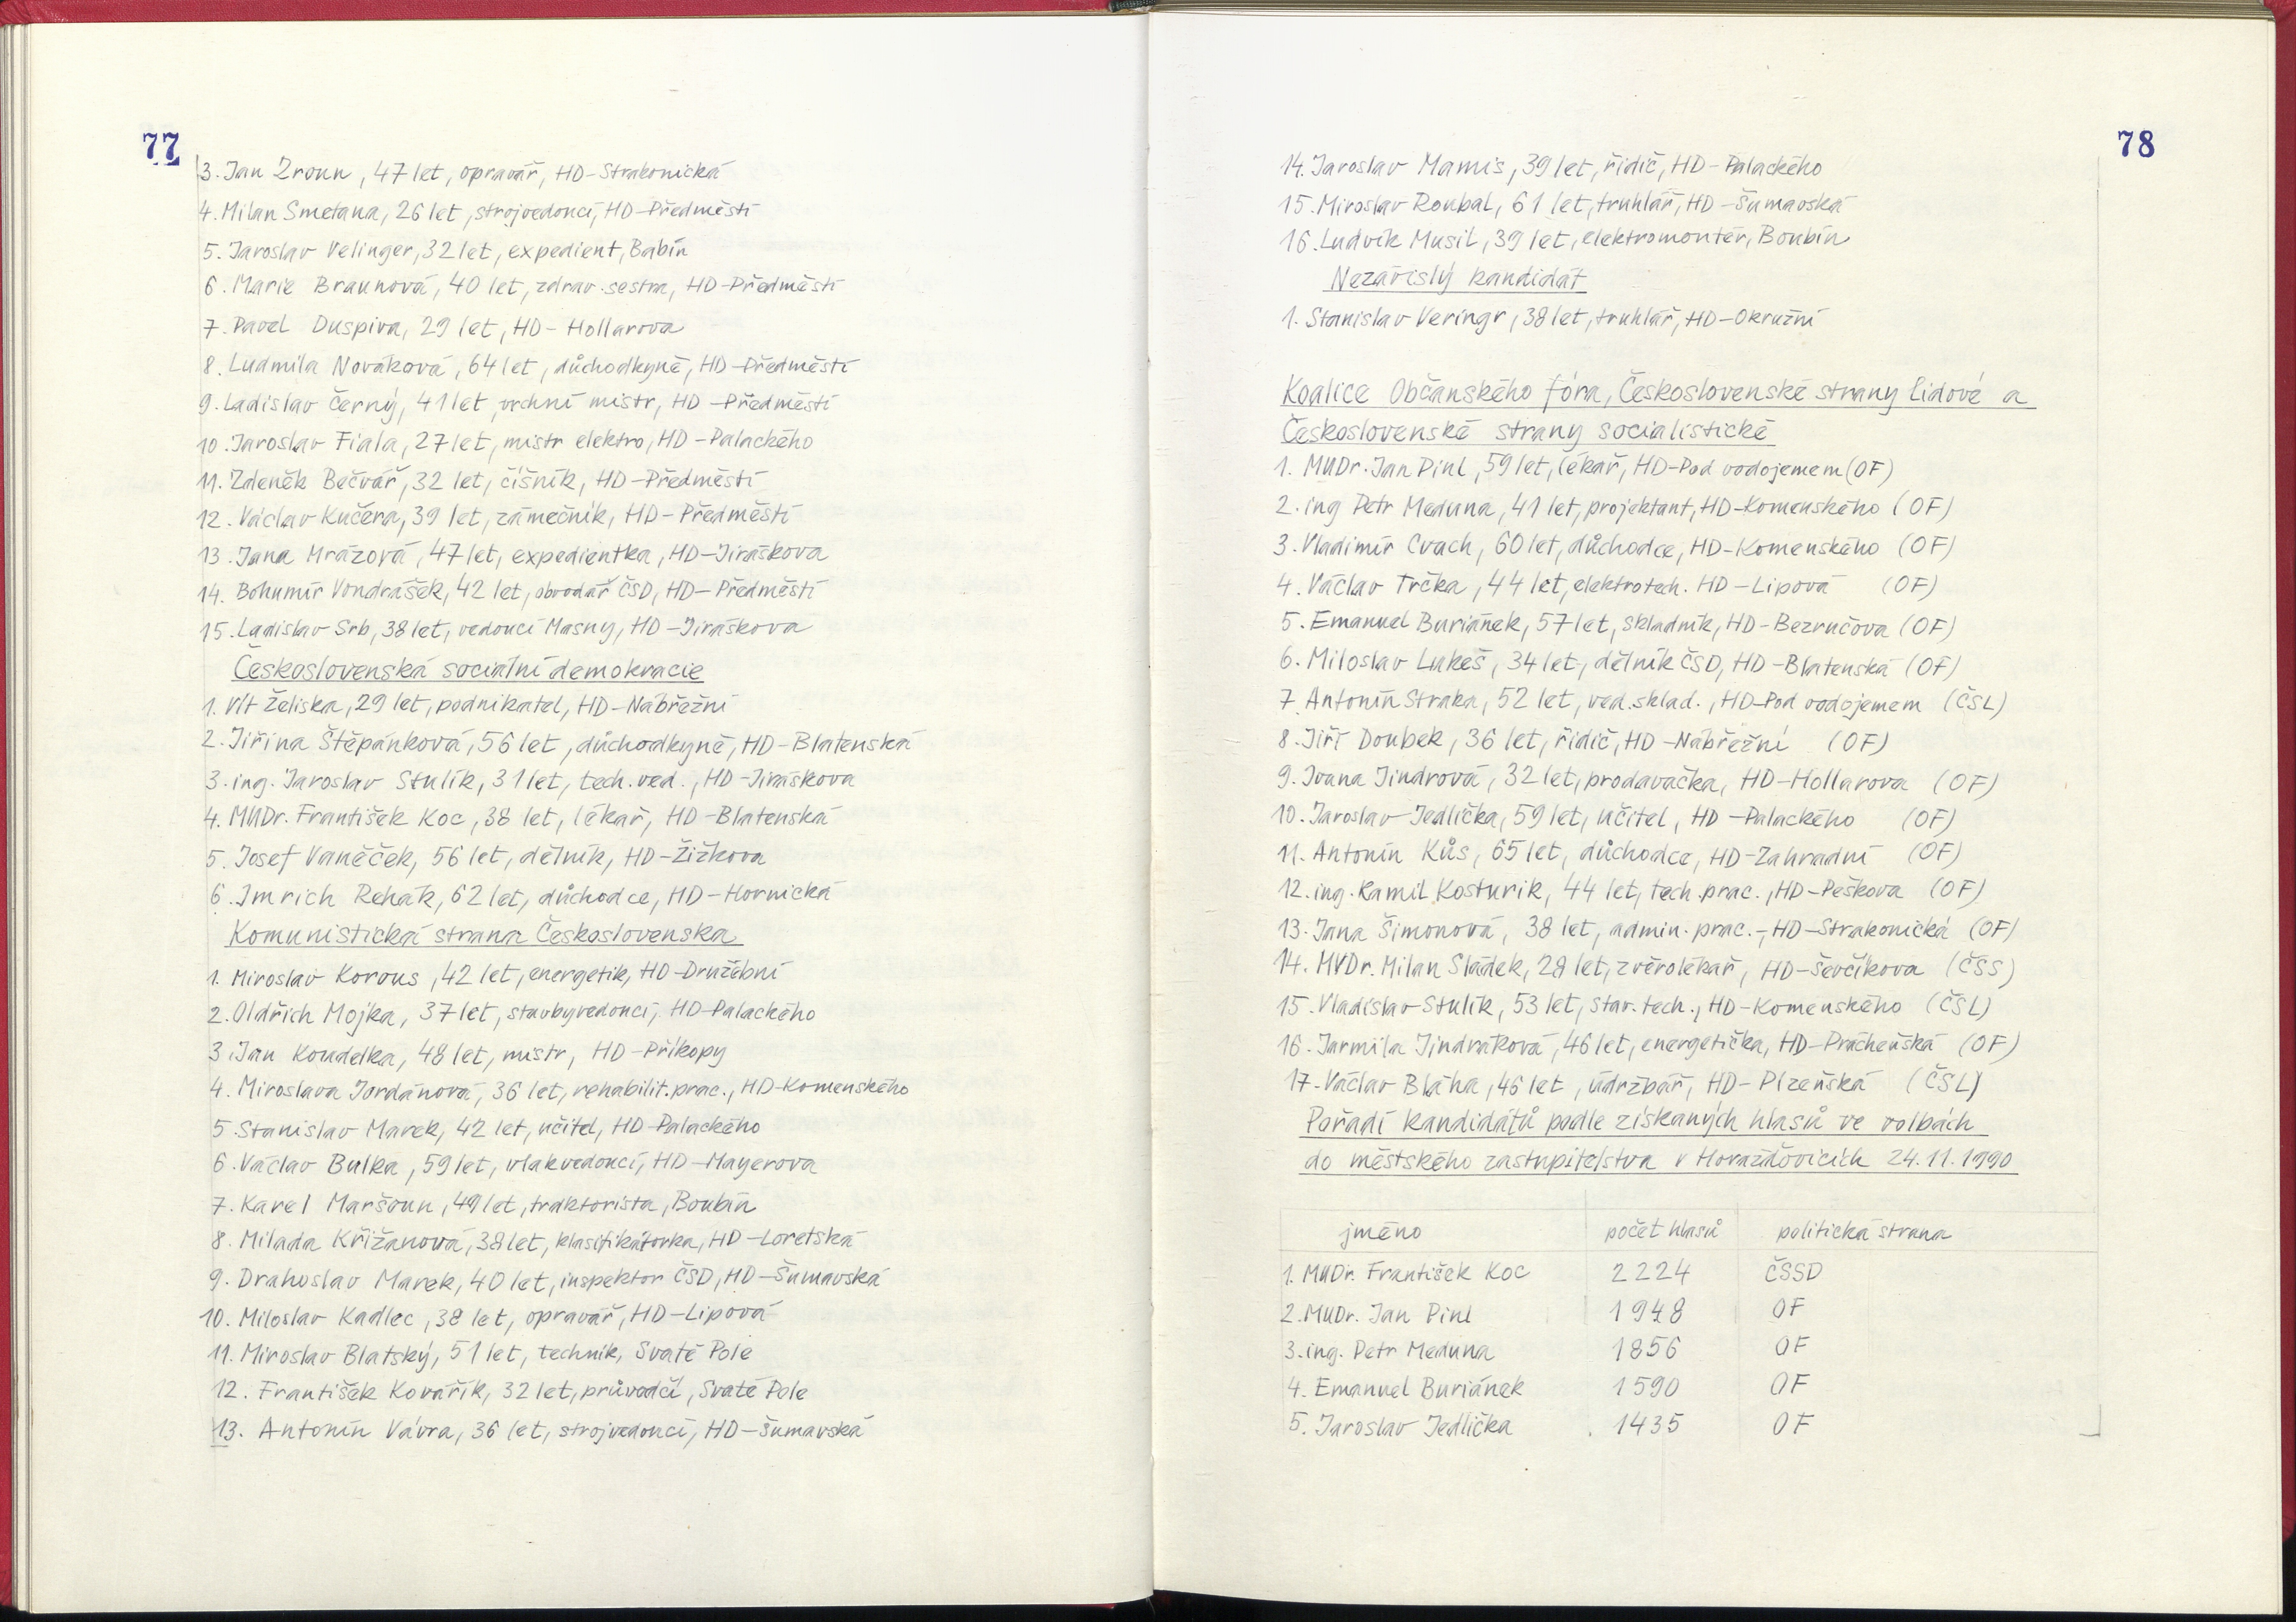 77
3. Jan Zroun, 47 let, opravář, HD-Strakonická
4. Milan Smetana, 26 let, strojvedoucí, HD-Předměstí
5. Jaroslav Velinger, 32 let, expedient, Babín
6. Marie Braunová, 40 let, zdrav. sestra, HD-Předměstí
7. Pavel Duspiva, 29 let, HD-Hollarova
8. Ludmila Nováková, 64 let, důchodkyně, HD-Předměstí
9. Ladislav Černý, 41 let, vrchní mistr, HD-Předměstí
10. Jaroslav Fiala, 27 let, mistr elektro, HD-Palackého
11. Zdeněk Bečvář, 32 let, číšník, HD-Předměstí
12. Václav Kučera, 39 let, zámečník, HD-Předměstí
13. Jana Mrázová, 47 let, expedientka, HD-Jiráskova
14. Bohumír Vondrášek, 42 let, obvodář ČSD, HD-Předměstí
15. Ladislav Srb, 38 let, vedoucí Masny, HD-Jiráskova
Československá sociální demokracie
1. Vít Želiska, 29 let, podnikatel, HD-Nábřežní
2. Jiřina Štěpánková, 56 let, důchodkyně, HD-Blatenská
3. ing. Jaroslav Stulík, 31 let, tech. ved., HD-Jiráskova
4. MUDr. František Koc, 38 let, lékař, HD-Blatenská
5. Josef Vaněček, 56 let, dělník, HD-Žižkova
6. Imrich Rehák, 62 let, důchodce, HD-Hornická
Komunistická strana Československa
1. Miroslav Korous, 42 let, energetik, HD-Družební
2. Oldřich Mojka, 37 let, stavbyvedoucí, HD-Palackého
3. Jan Koudelka, 48 let, mistr, HD-Příkopy
4. Miroslava Jordánová, 36 let, rehabilit. prac., HD-Komenského
5. Stanislav Marek, 42 let, učitel, HD-Palackého
6. Václav Bulka, 59 let, vlakvedoucí, HD-Mayerova
7. Karel Maršoun, 49 let, traktorista, Boubín
8. Milada Křižanová, 38 let, klasifikátorka, HD-Loretská
9. Drahoslav Marek, 40 let, inspektor ČSD, HD-Šumavská
10. Miloslav Kadlec, 38 let, opravář, HD-Lipová
11. Miroslav Blatský, 51 let, technik, Svaté Pole
12. František Kovářík, 32 let, průvodčí, Svaté Pole
13. Antonín Vávra, 36 let, strojvedoucí, HD-Šumavská
78
14. Jaroslav Mamis, 39 let, řidič, HD-Palackého
15. Miroslav Roubal, 61 let, truhlář, HD-Šumavská
16. Ludvík Musil, 39 let, elektromontér, Boubín
Nezávislý kandidát
1. Stanislav Veringr, 38 let, truhlář, HD-Okružní
Koalice Občanského fóra, Československé strany lidové a
Československé strany socialistické
1. MUDr. Jan Pinl, 59 let, lékař, HD-Pod vodojemem (OF)
2. ing Petr Meduna, 41 let, projektant, HD-Komenského (OF)
3. Vladimír Cvach, 60 let, důchodce, HD-Komenského (OF)
4. Václav Trčka, 44 let, elektrotech. HD-Lipová (OF)
5. Emanuel Buriánek, 57 let, skladník, HD-Bezručova (OF)
6. Miloslav Lukeš, 34 let, dělník ČSD, HD-Blatenská (OF)
7. Antonín Straka, 52 let, ved. sklad., HD-Pod vodojemem (ČSL)
8. Jiří Doubek, 36 let, řidič, HD-Nábřežní (OF)
9. Ivana Jindrová, 32 let, prodavačka, HD-Hollarova (OF)
10. Jaroslav Jedlička, 59 let, učitel, HD-Palackého (OF)
11. Antonín Kůs, 65 let, důchodce, HD-Zahradní (OF)
12. ing. Kamil Kosturik, 44 let, tech. prac., HD-Peškova (OF)
13. Jana Šimonová, 38 let, admin. prac.-, HD-Strakonická (OF)
14. MVDr. Milan Sládek, 28 let, zvěrolékař, HD-Ševčíkova (ČSS)
15. Vladislav Stulík, 53 let, stav. tech., HD-Komenského (ČSL)
16. Jarmila Jindráková, 46 let, energetička, HD-Práchenská (OF)
17. Václav Bláha, 46 let, údržbář, HD-Plzeňská (ČSL)
Pořadí kandidátů podle získaných hlasů ve volbách
do městského zastupitelstva v Horažďovicích 24.11.1990
jméno počet hlasů politická strana
1. MUDr. František Koc 2224 ČSSD
2. MUDr. Jan Pinl 1948 OF
3. ing. Petr Meduna 1856 OF
4. Emanuel Buriánek 1590 OF
5. Jaroslav Jedlička 1435 OF